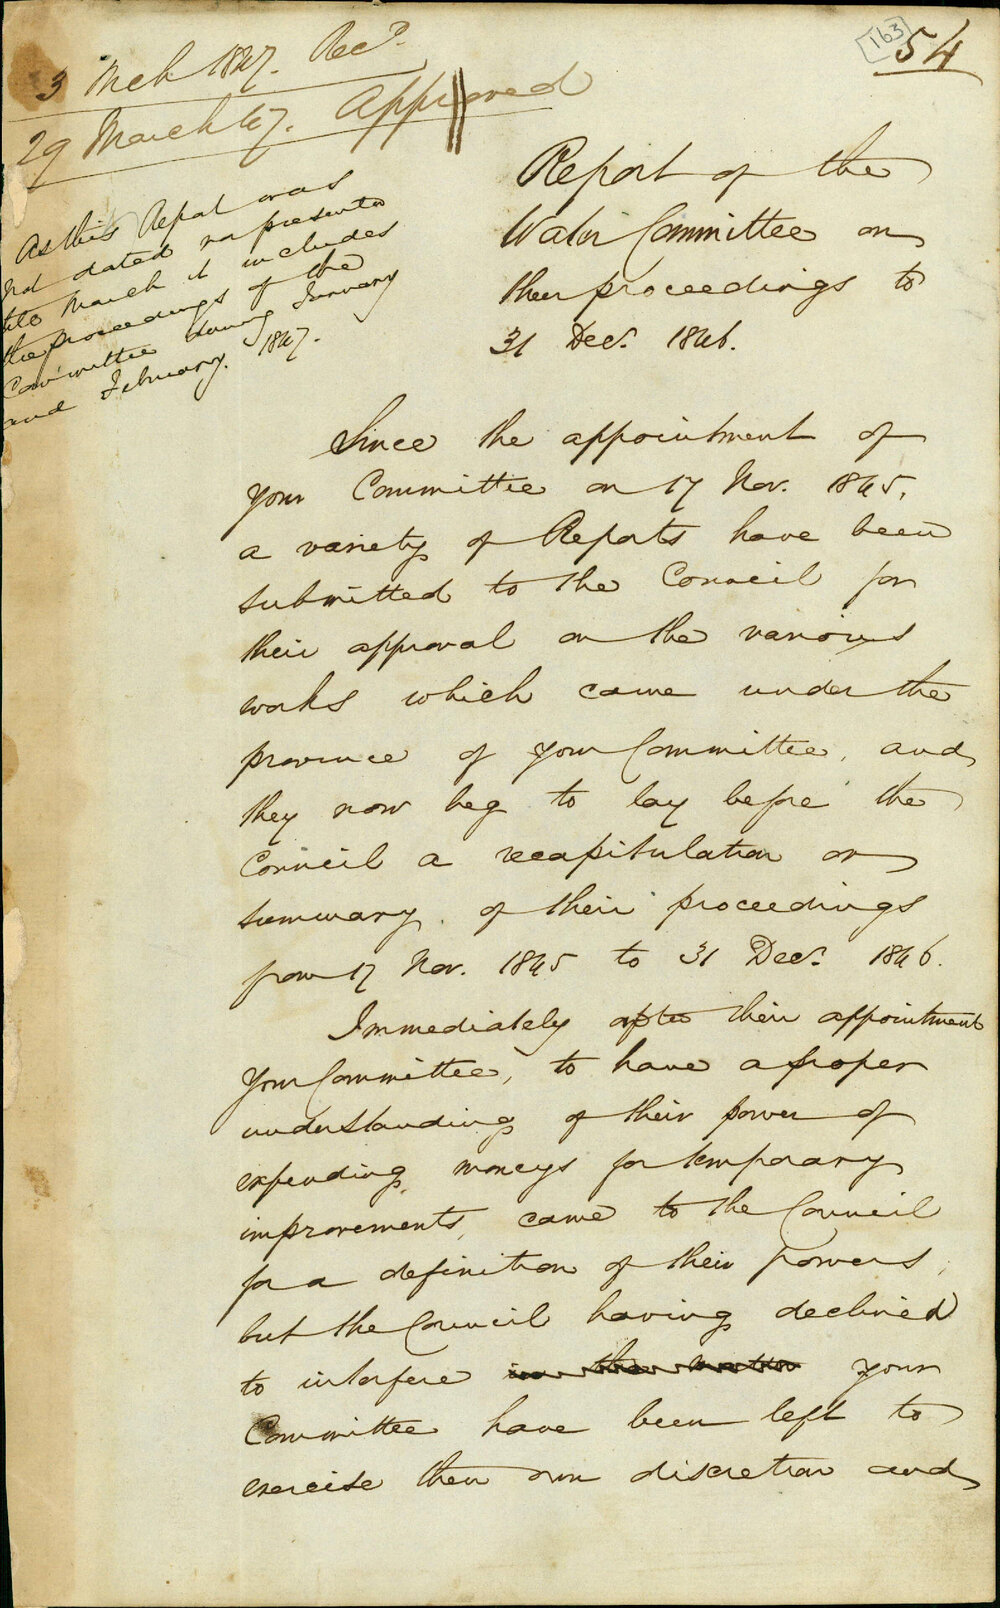 163
54
3 Mch 1847. Recd.
29 March 47. Approved
As this Report was
not dated nor presented
till March it includes
the proceedings of the
Committee during January
and February. 1847.
Report of the
Water Committee on
their proceedings to
31 Decr. 1846.
Since the appointment of
your Committee on 17 Nov. 1845,
a variety of Reports have been
submitted to the Council for
their approval on the various
works which came under the
province of your Committee, and
they now beg to lay before the
Council a recapitulation or
summary of their proceedings
from 17 Nov. 1845 to 31 Decr. 1846.
Immediately after their appointment
your Committee, to have a proper
understanding of their power of
expending moneys for temporary
improvements, came to the Council
for a definition of their powers,
but the Council having declined
to interfere in the matter your
Committee have been left to
exercise their own discretion and